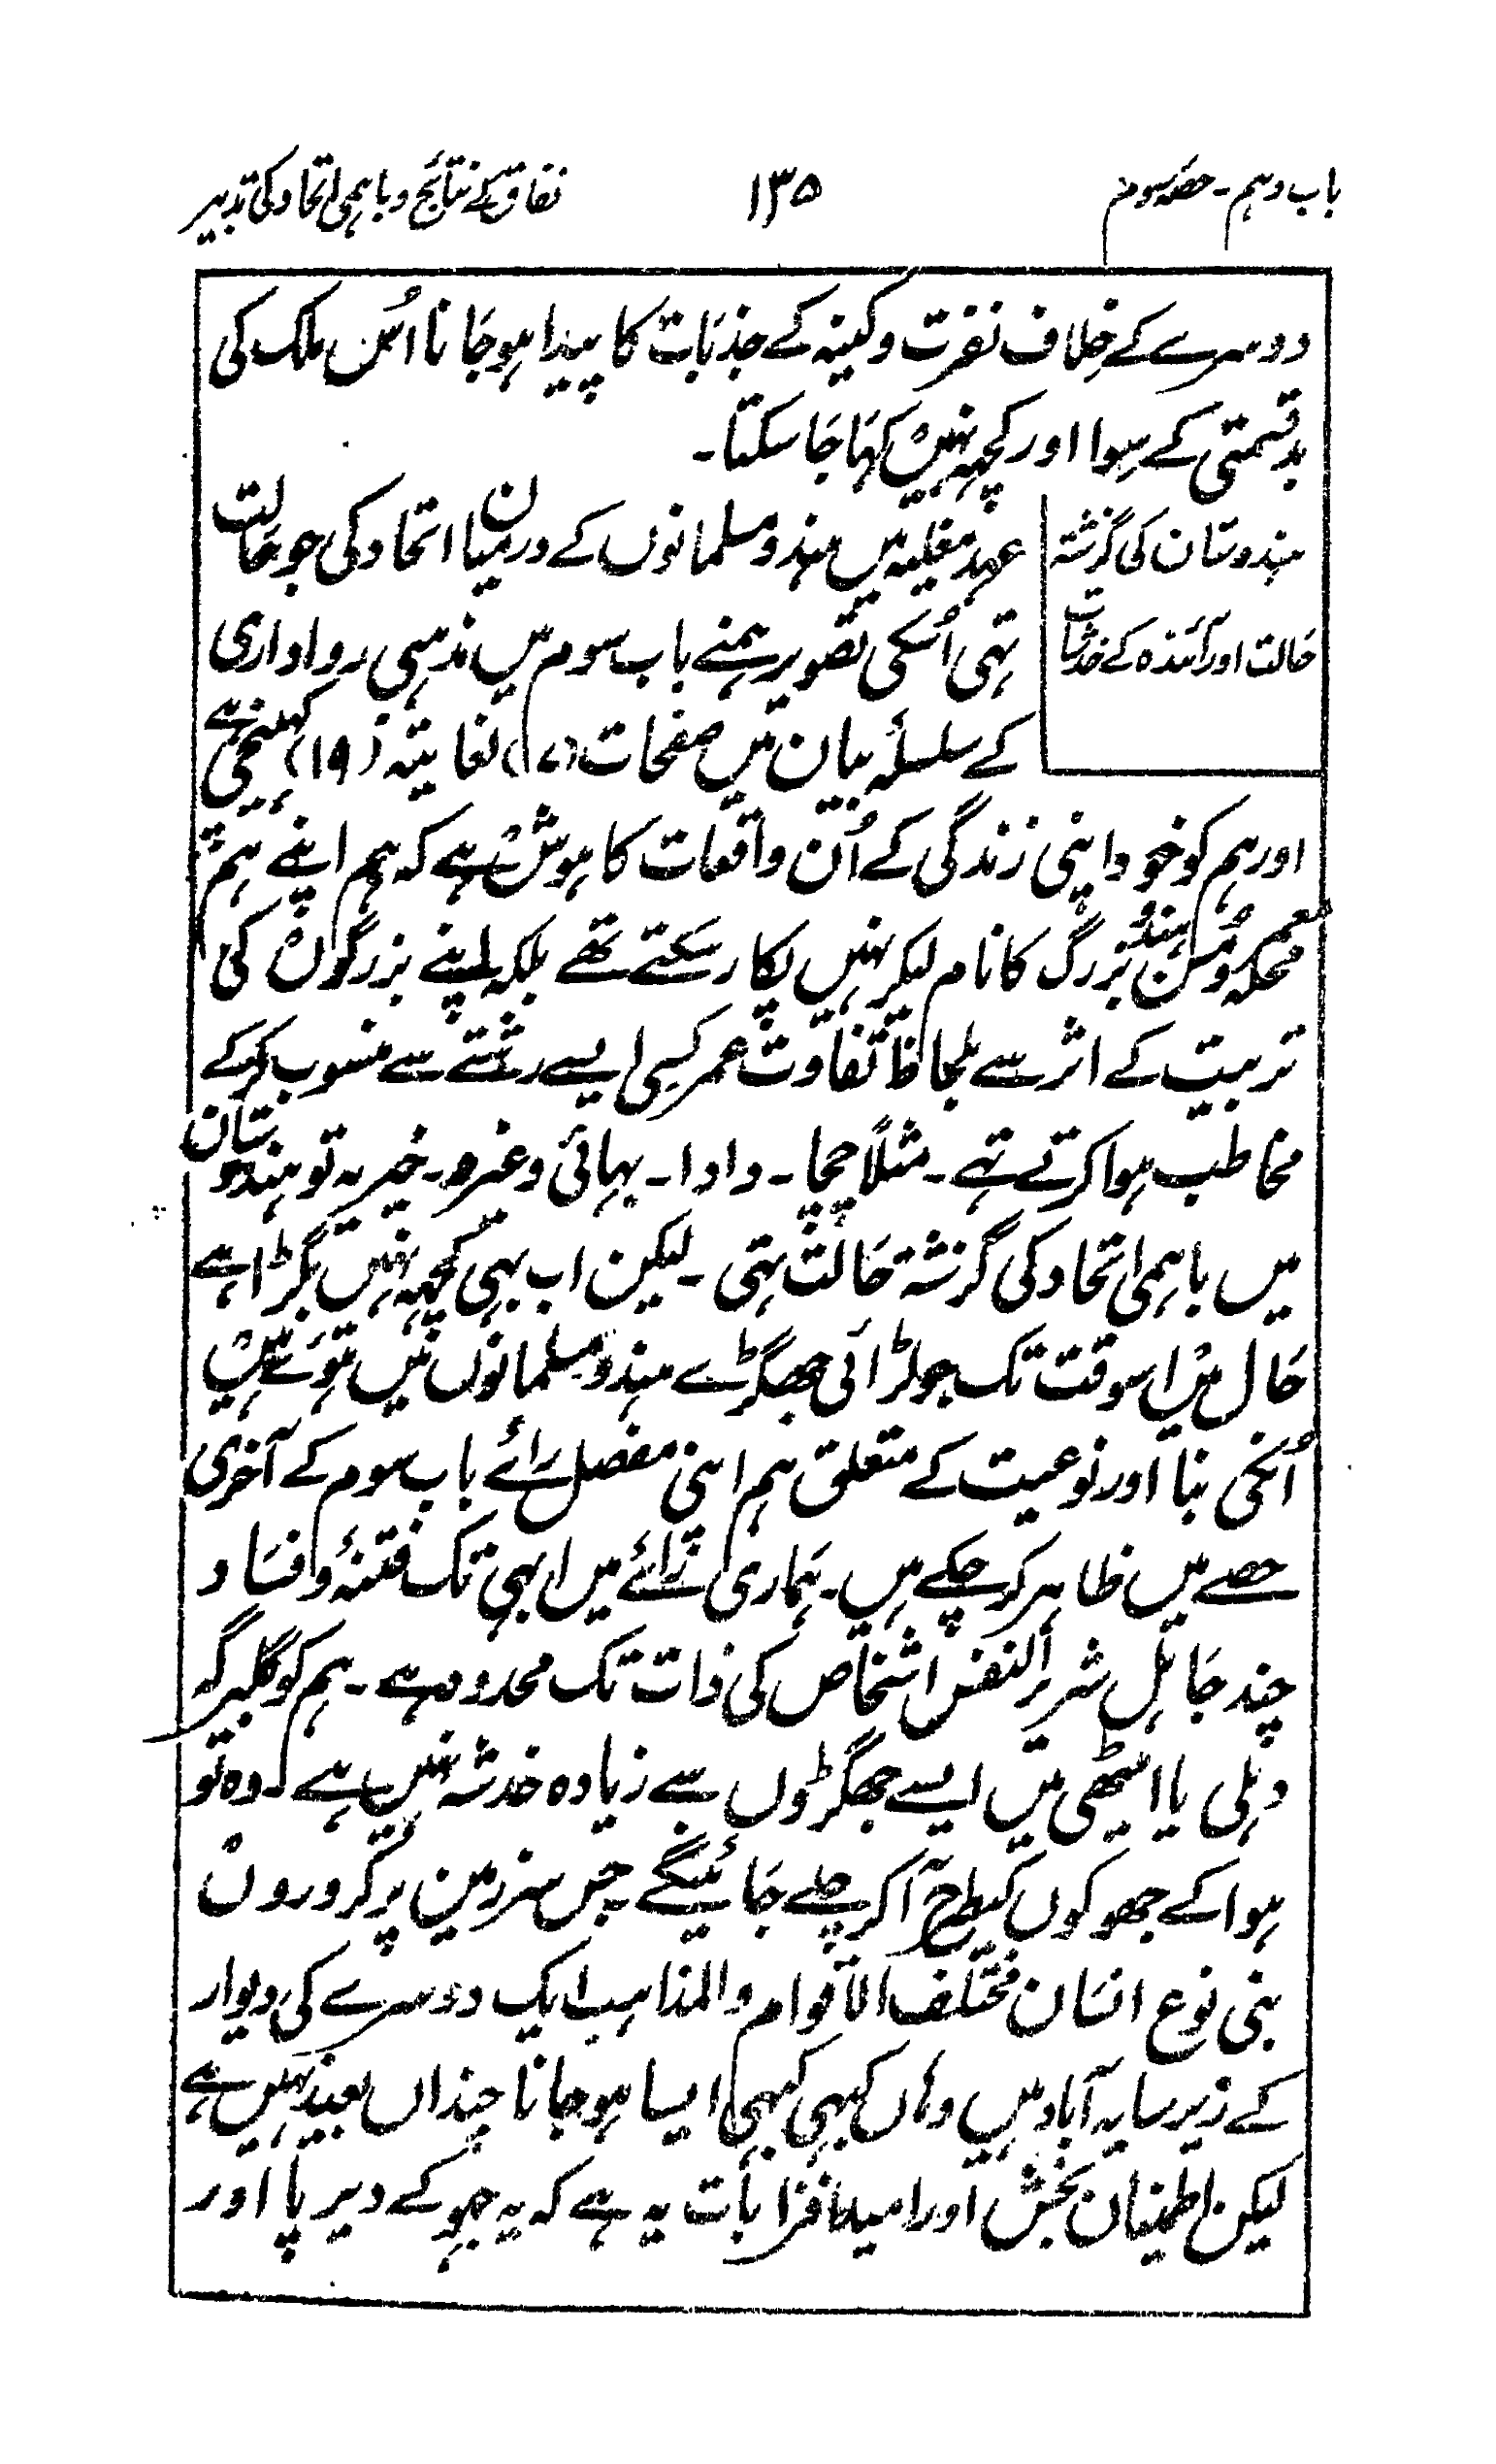 باب دہم - حصہ سوم ۱۳۵ نفاق کے نتائج و باہمی اتحاد کی تدبیر
دوسرے کے خلاف نفرت و کینہ کے جذبات کا پیدا ہو جانا اُس ملک کی
بدقسمتی کے سوا اور کچہہ نہیں کہا جا سکتا۔
ہندوستان کی گزشتہ
حالت اور آئندہ کے خدشات
عہد مغلیہ میں ہندو مسلمانوں کے درمیان اتحاد کی جو حالت
تہی اُسکی تصویر ہمنے باب سوم میں مذہبی رواداری
کے سلسلۂ بیان میں صفحات (۷) لغایتہ (۱۹) کھینچی ہے
اور ہم کو خود اپنی زندگی کے اُن واقعات کا ہوش ہے کہ ہم اپنے ہم
محلہ و مسن ہندو بزرگ کا نام لیکر نہیں پکار سکتے تھے بلکہ اپنے بزرگوں کی
تربیت کے اثر سے بلحاظ تفاوت عمر کسی ایسے رشتے سے منسوب کر کے
مخاطب ہوا کرتے تہے۔ مثلاً چچا۔ دادا۔ بہائی وغیرہ۔ خیر یہ تو ہندوستان
میں باہمی اتحاد کی گزشتہ حالت تہی۔ لیکن اب بہی کچہہ نہیں بگڑا ہے
حال میں اسوقت تک جو لڑائی جھگڑے ہندو مسلمانوں میں ہوئے ہیں
اُنکی بنا اور نوعیت کے متعلق ہم اپنی مفصل رائے باب سوم کے آخری
حصے میں ظاہر کر چکے ہیں۔ ہماری رائے میں ابہی تک فتنۂ و فساد
چند جاہل شریر النفس اشخاص کی ذات تک محدود ہے۔ ہم کو گلبرگہ
دہلی یا امیٹھی میں ایسے جھگڑوں سے زیادہ خدشہ نہیں ہے۔ وہ تو
ہوا کے جھوکوں کیطرح آکر چلے جائینگے جس سرزمین پر کروروں
بنی نوع انسان مختلف الاقوام والمذاہب ایک دوسرے کی دیوار
کے زیر سایہ آباد ہیں وہاں کبہی کبہی ایسا ہو جانا چنداں بعید نہیں ہے
لیکن اطمینان بخش اور امید افزا بات یہ ہے کہ یہ جھوکے دیر پا اور